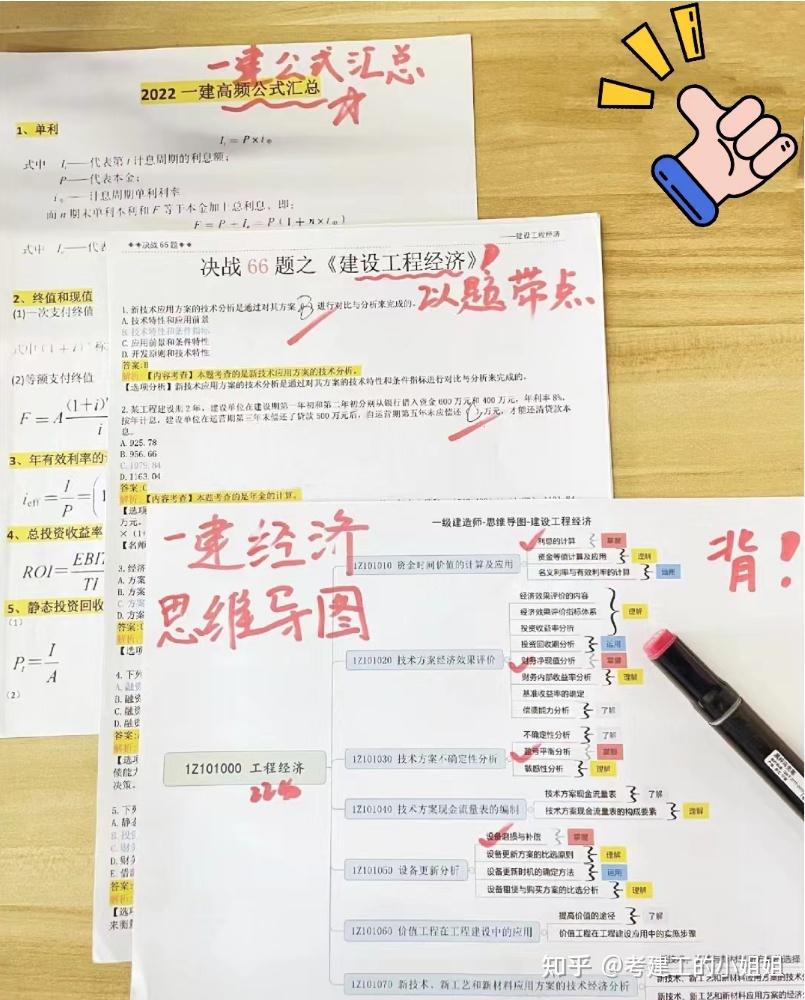 一建公式汇总
2022 一建高频公式汇总
1、单利
式中 I——代表第 t 计息周期的利息额;
P——代表本金;
计息周期单利利率
而 n 期末单利本利和 F 等于本金加上总利息,即:
式中
2、终值和现值
(1)一次支付终值
(2)等额支付终值
3、年有效利率的
4、总投资收益率
5、静态投资回收
(1)
(2)
决战66题
——建设工程经济
决战 66 题之《建设工程经济》
以题带点
1. 新技术应用方案的技术分析是通过对其方案 B 进行对比与分析来完成的。
A. 技术特性和应用前景
B. 技术特性和条件指标
C. 应用前景和条件特性
D. 开发原则和技术特性
答案:B
解析:【内容考查】本题考查的是新技术应用方案的技术分析。
【选项分析】新技术应用方案的技术分析是通过对其方案的技术特性和条件指标进行对比与分析来完成的。
2. 某工程建设期 2 年,建设单位在建设期第一年初和第二年初分别从银行借入资金 600 万元和 400 万元,年利率 8%,
按年计息,建设单位在运营期第三年末偿还了贷款 500 万元后,自运营期第五年末应偿还 万元,才能还清贷款本
息。
A. 925.78
B. 956.66
C. 1079.84
D. 1163.04
答案:C
解析:【内容考查】本题考查的是年金的计算。
一建经济
思维导图
背!
一级建造师-思维导图-建设工程经济
1Z101000 工程经济
22分
1Z101010 资金时间价值的计算及应用
利息的计算 掌握
资金等值计算及应用 理解
名义利率与有效利率的计算 运用
1Z101020 技术方案经济效果评价
经济效果评价的内容
经济效果评价指标体系 理解
投资收益率分析
投资回收期分析 运用
财务净现值分析 掌握
财务内部收益率分析 理解
基准收益率的确定
偿债能力分析 了解
1Z101030 技术方案不确定性分析
不确定性分析 了解
盈亏平衡分析 掌握
敏感性分析 理解
1Z101040 技术方案现金流量表的编制
技术方案现金流量表 了解
技术方案现金流量表的构成要素 理解
1Z101050 设备更新分析
设备磨损与补偿 掌握
设备更新方案的比选原则 理解
设备更新时机的确定方法 运用
设备租赁与购买方案的比选分析 理解
1Z101060 价值工程在工程建设中的应用
提高价值的途径 了解
价值工程在工程建设应用中的实施步骤
1Z101070 新技术、新工艺和新材料应用方案的技术经济分析
知乎 @考建工的小姐姐